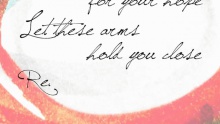 for your hope
Let these arms
hold you close